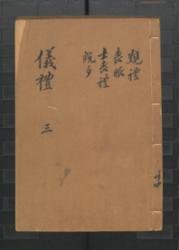 覲禮
喪服
士喪禮
既夕
儀禮
三